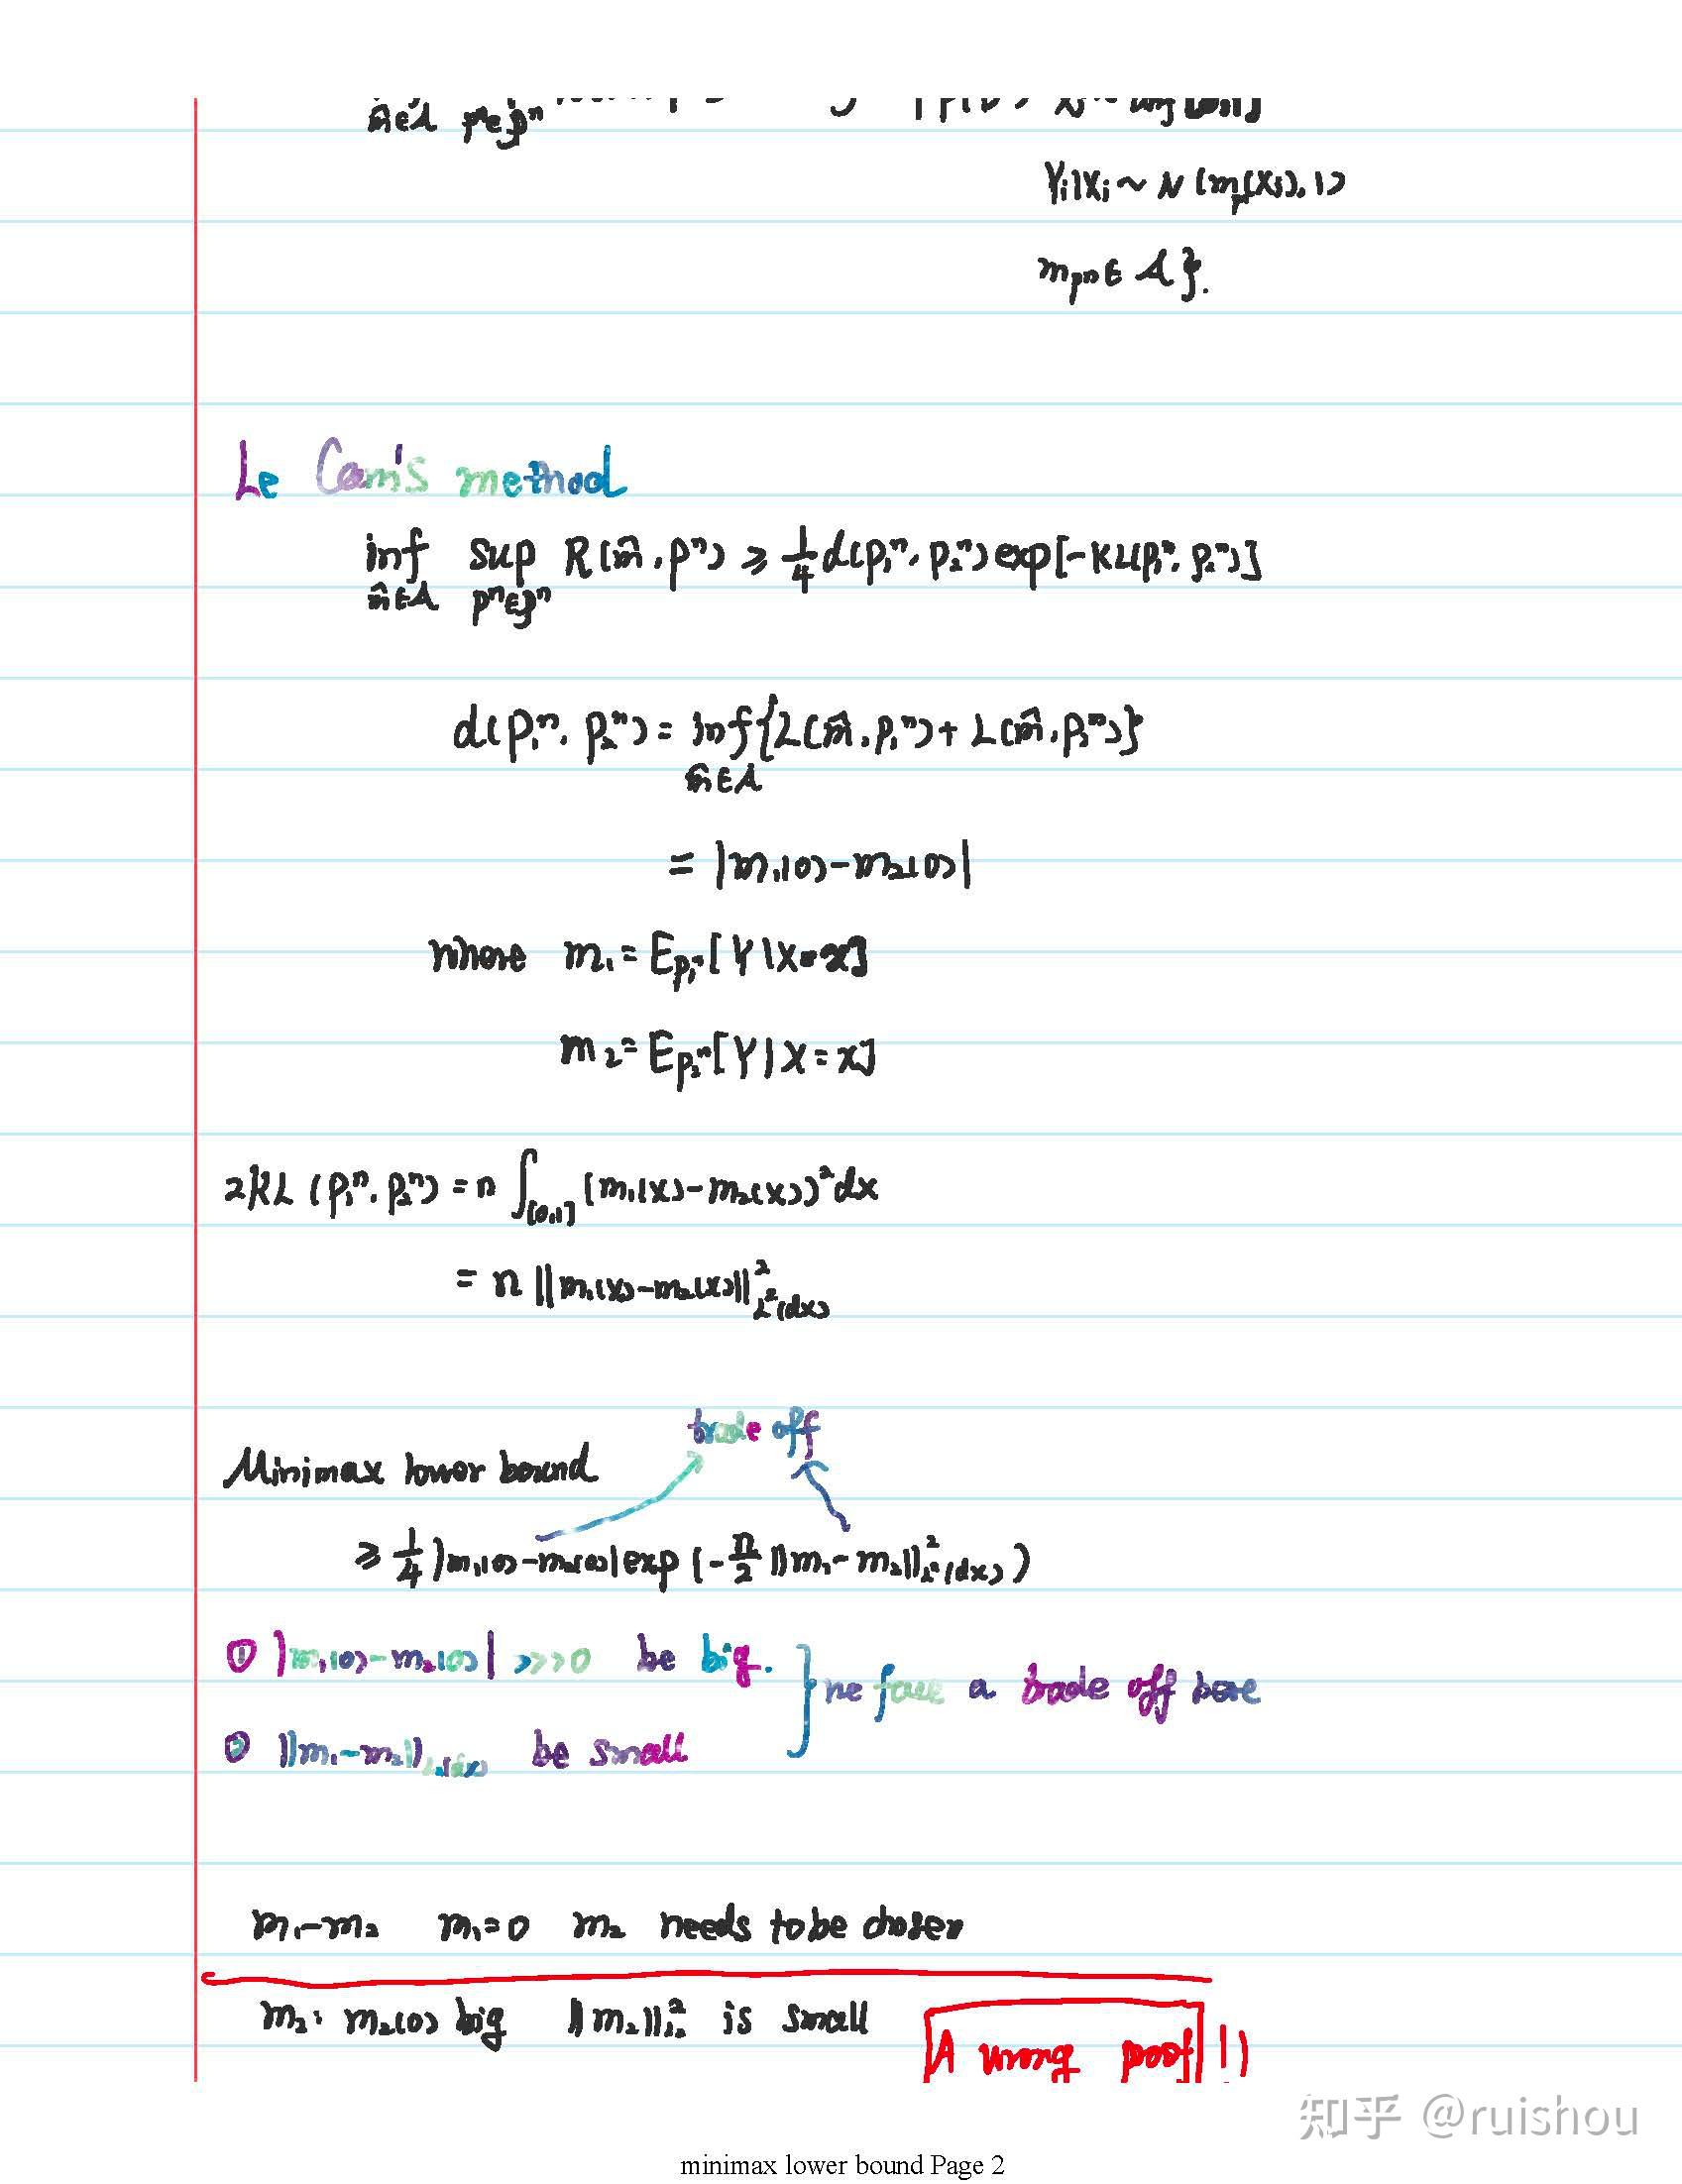 m̂∈A pⁿ∈𝒫ⁿ
Yᵢ|Xᵢ ~ N(m_p(Xᵢ), 1)
m_pⁿ ∈ A }.
Le Cam's method
inf sup R(m̂, pⁿ) ≥ 1/4 d(p₁ⁿ, p₂ⁿ) exp[-KL(p₁ⁿ, p₂ⁿ)]
m̂∈A pⁿ∈𝒫ⁿ
d(p₁ⁿ, p₂ⁿ) = inf{L(m̂, p₁ⁿ) + L(m̂, p₂ⁿ)}
m̂∈A
= |m₁(0) - m₂(0)|
where m₁ = E_p₁ⁿ[Y|X=x]
m₂ = E_p₂ⁿ[Y|X=x]
2KL(p₁ⁿ, p₂ⁿ) = n ∫_[0,1] (m₁(x) - m₂(x))² dx
= n ||m₁(x) - m₂(x)||²_L²(dx)
trade off
Minimax lower bound
≥ 1/4 |m₁(0) - m₂(0)| exp(-n/2 ||m₁ - m₂||²_L²(dx))
① |m₁(0) - m₂(0)| >>>0 be big.
we face a trade off here
② ||m₁ - m₂||_L₂(dx) be small
m₁-m₂ m₁=0 m₂ needs to be chosen
m₂: m₂(0) big ||m₂||²_L₂ is small
A wrong proof!!
知乎 @ruishou
minimax lower bound Page 2